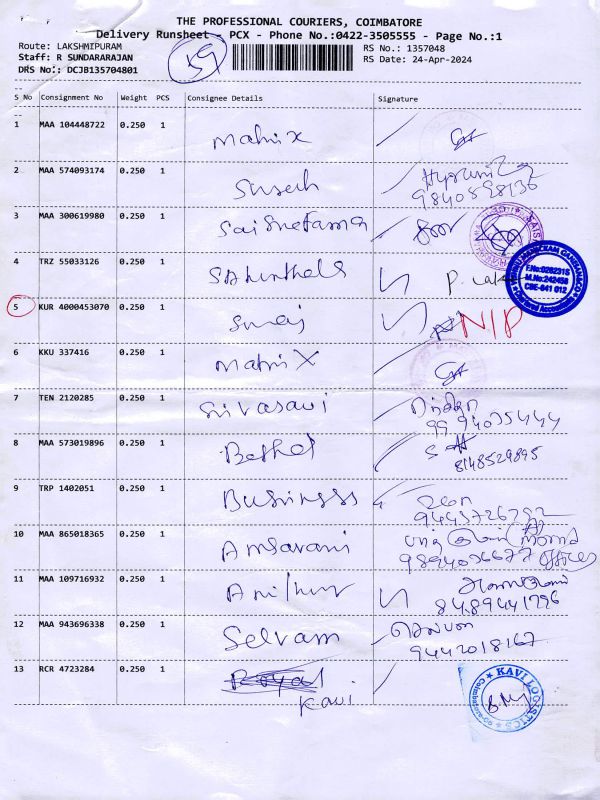 THE PROFESSIONAL COURIERS, COIMBATORE
Delivery Runsheet - PCX - Phone No.:0422-3505555 - Page No.:1
Route: LAKSHMIPURAM
Staff: R SUNDARARAJAN
DRS No.: DCJB135704801
59
RS No.: 1357048
RS Date: 24-Apr-2024
S No Consignment No Weight PCS Consignee Details Signature
1 MAA 104448722 0.250 1 Matrix
2 MAA 574093174 0.250 1 Suresh
9840898136
3 MAA 300619980 0.250 1
4 TRZ 55033126 0.250 1
F.No:026231S
M.No:242456
CBE-641 012
5 KUR 4000453070 0.250 1 Suraj N/P
6 KKU 337416 0.250 1 Matrix
7 TEN 2120285 0.250 1 Srivasavi
9994035444
8 MAA 573019896 0.250 1 Bethel
8148529895
9 TRP 1402051 0.250 1 Business
9443726792
10 MAA 865018365 0.250 1 Amsavani
9894036677 office
11 MAA 109716932 0.250 1
8489441796
12 MAA 943696338 0.250 1 Selvam
9442018167
13 RCR 4723284 0.250 1 Royal
Kavi
KAVI LOGISTICS